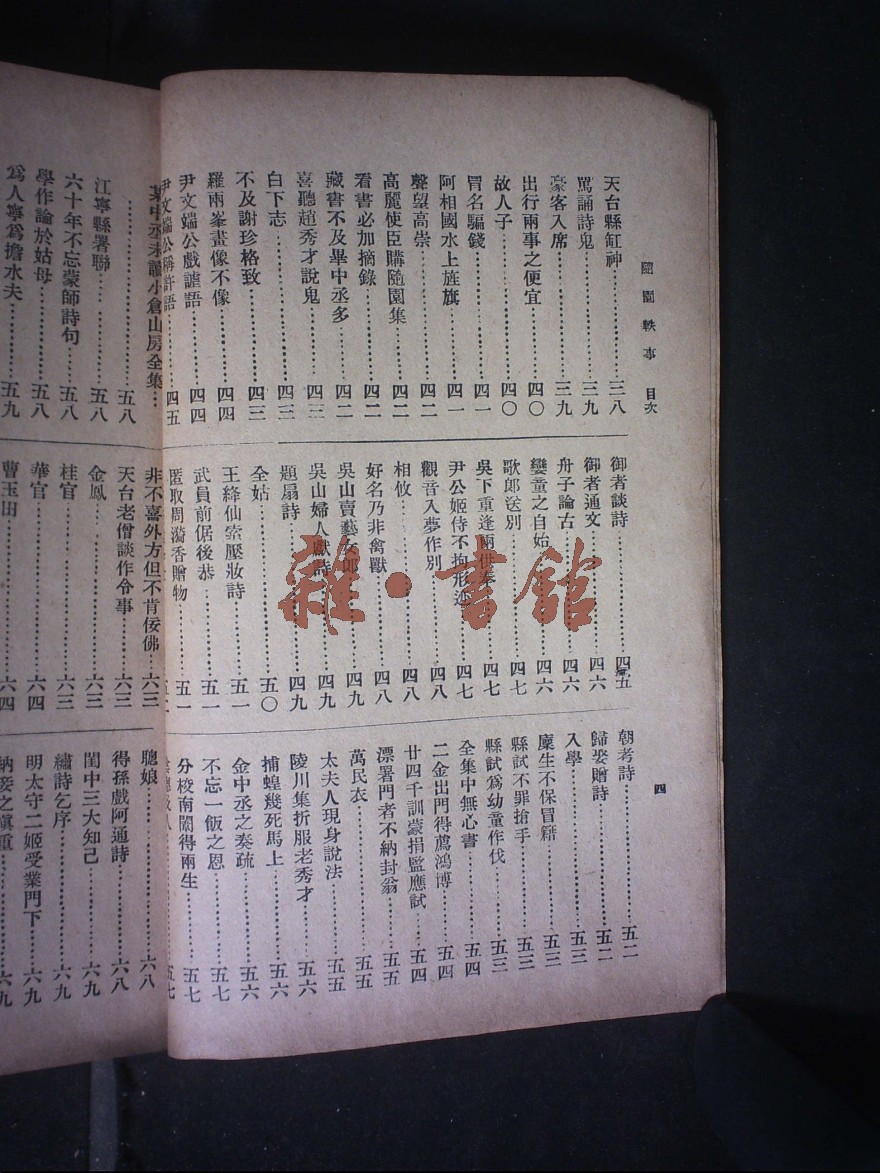 隨園軼事 目次
四
天台縣缸神……三八
罵誦詩鬼……三九
豪客入席……三九
出行兩事之便宜……四〇
故人子……四〇
冒名騙錢……四一
阿相國水上旌旗……四一
聲望高崇……四二
高麗使臣購隨園集……四二
看書必加摘錄……四二
藏書不及畢中丞多……四二
喜聽趙秀才說鬼……四三
白下志……四三
不及謝珍格致……四三
羅兩峯畫像不像……四四
尹文端公戲謔語……四四
尹文端公稱許語……四五
御者談詩……四五
御者通文……四六
舟子論古……四六
孌童之自始……四六
歌郎送別……四七
吳下重逢兩供奉……四七
尹公姬侍不拘形迹……四七
觀音入夢作別……四八
相攸……四八
好名乃非禽獸……四八
吳山賣藝女郎……四九
吳山婦人獻詩……四九
題扇詩……四九
全姑……五〇
王絳仙索壓妝詩……五一
武員前倨後恭……五一
匿取周漪香贈物……五一
朝考詩……五二
歸娶贈詩……五二
入學……五三
廩生不保冒籍……五三
縣試不罪搶手……五三
縣試爲幼童作伐……五三
全集中無心書……五四
二金出門得薦鴻博……五四
廿四千訓蒙捐監應試……五四
漂署門者不納封翁……五五
萬民衣……五五
太夫人現身說法……五五
陵川集折服老秀才……五六
捕蝗幾死馬上……五六
金中丞之奏疏……五六
不忘一飯之恩……五七
分校南闈得兩生……五七
五七
某中丞未讀小倉山房全集…
……五八
江寧縣署聯……五八
六十年不忘蒙師詩句……五八
學作論於姑母……五九
爲人寧爲擔水夫……五九
非不喜外方但不肯佞佛…六三
天台老僧談作令事……六三
金鳳……六三
桂官……六三
華官……六四
曹玉田……六四
聰娘……六八
得孫戲阿通詩……六八
閨中三大知己……六九
繡詩乞序……六九
明太守二姬受業門下……六九
納妾之愼重……六九
雜·書館